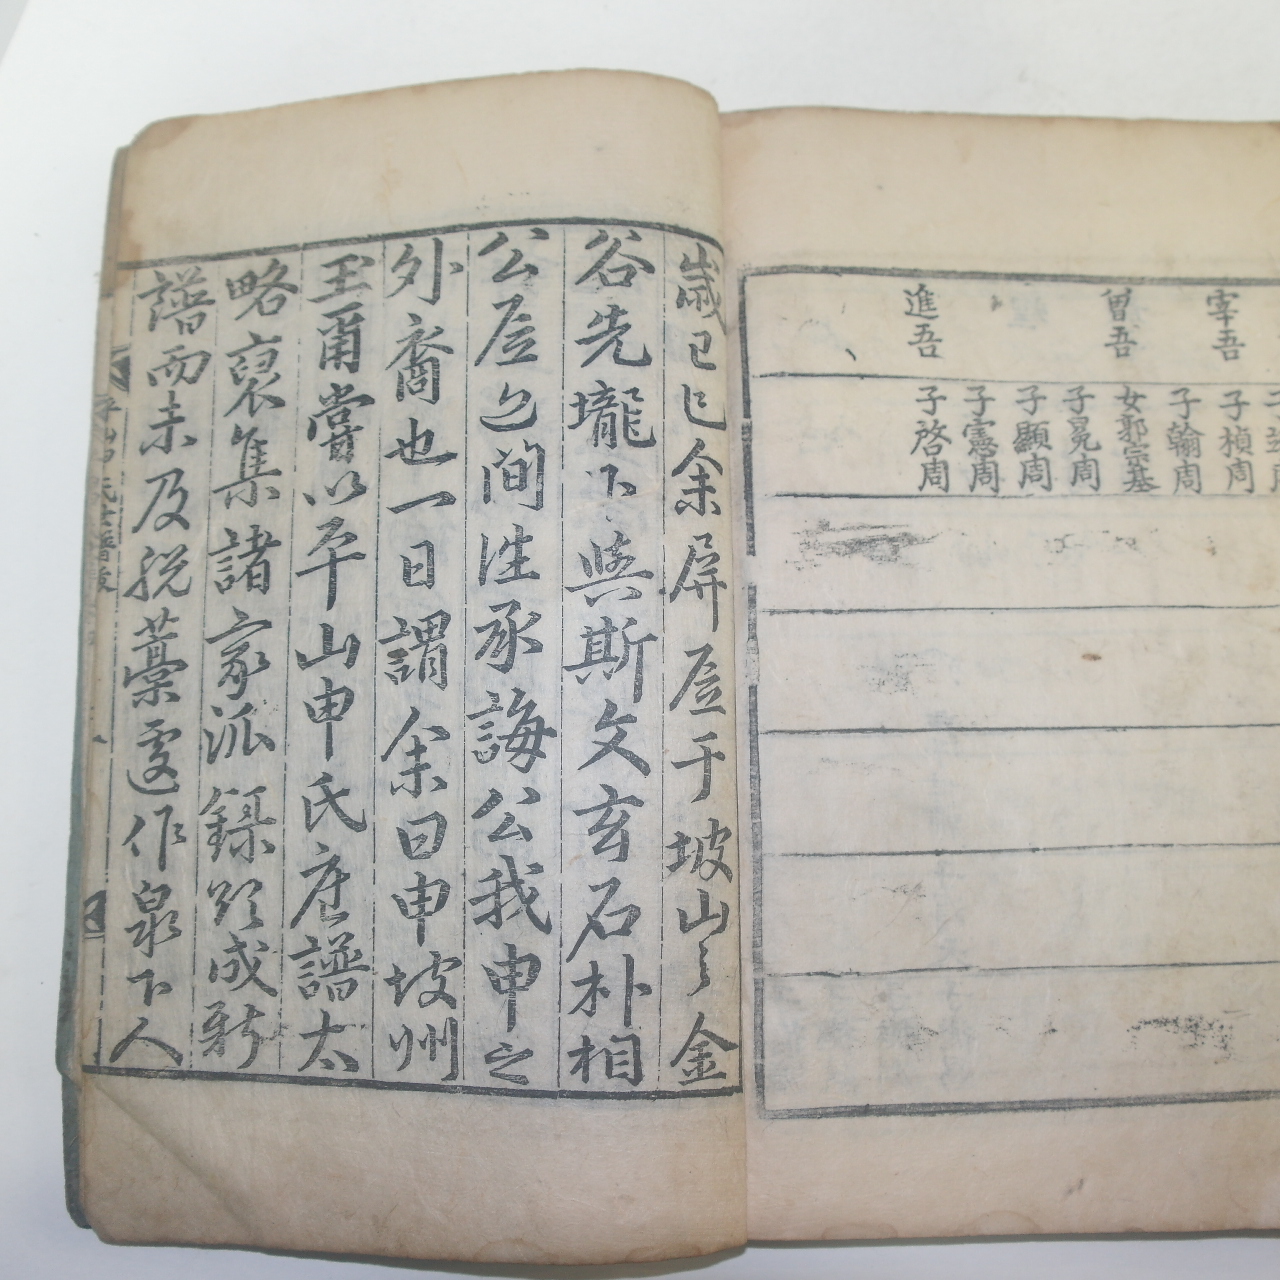 宰吾
曾吾
進吾
子楨周
子翰周
女郭宗基
子冕周
子顯周
子憲周
子啓周
歲己巳余屏居于坡山之金
谷先壠下與斯文玄石朴相
公居間往承誨公我申之
外裔也一日謂余曰申坡州
玉爾嘗以平山申氏譜太
略裒集諸家派録欲成新
譜而未及脫藁遽作泉下人
平山申氏世譜跋